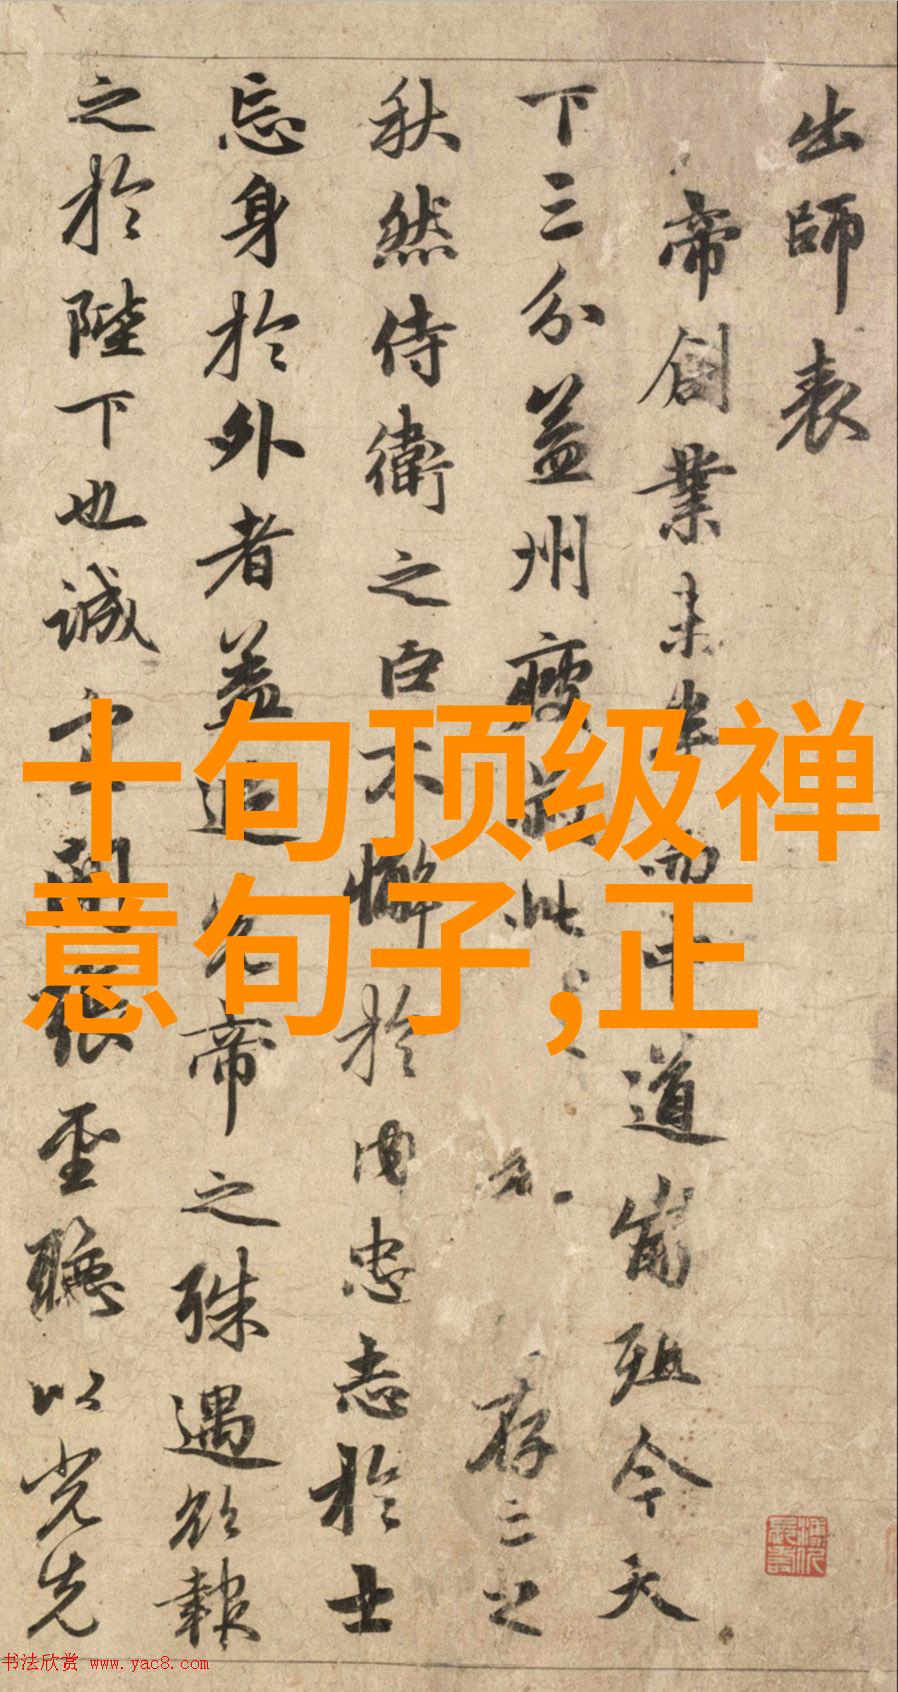 出師表
帝創業未半而中道崩殂今天
下三分益州疲敝此存之
秋然侍衛之臣不懈於内忠志於士
忘身於外者蓋追先帝之殊遇欲報
之於陛下也誠宜開張聖聽以光先
十句顶级禅
意句子,正
书法欣赏 www.yac8.com